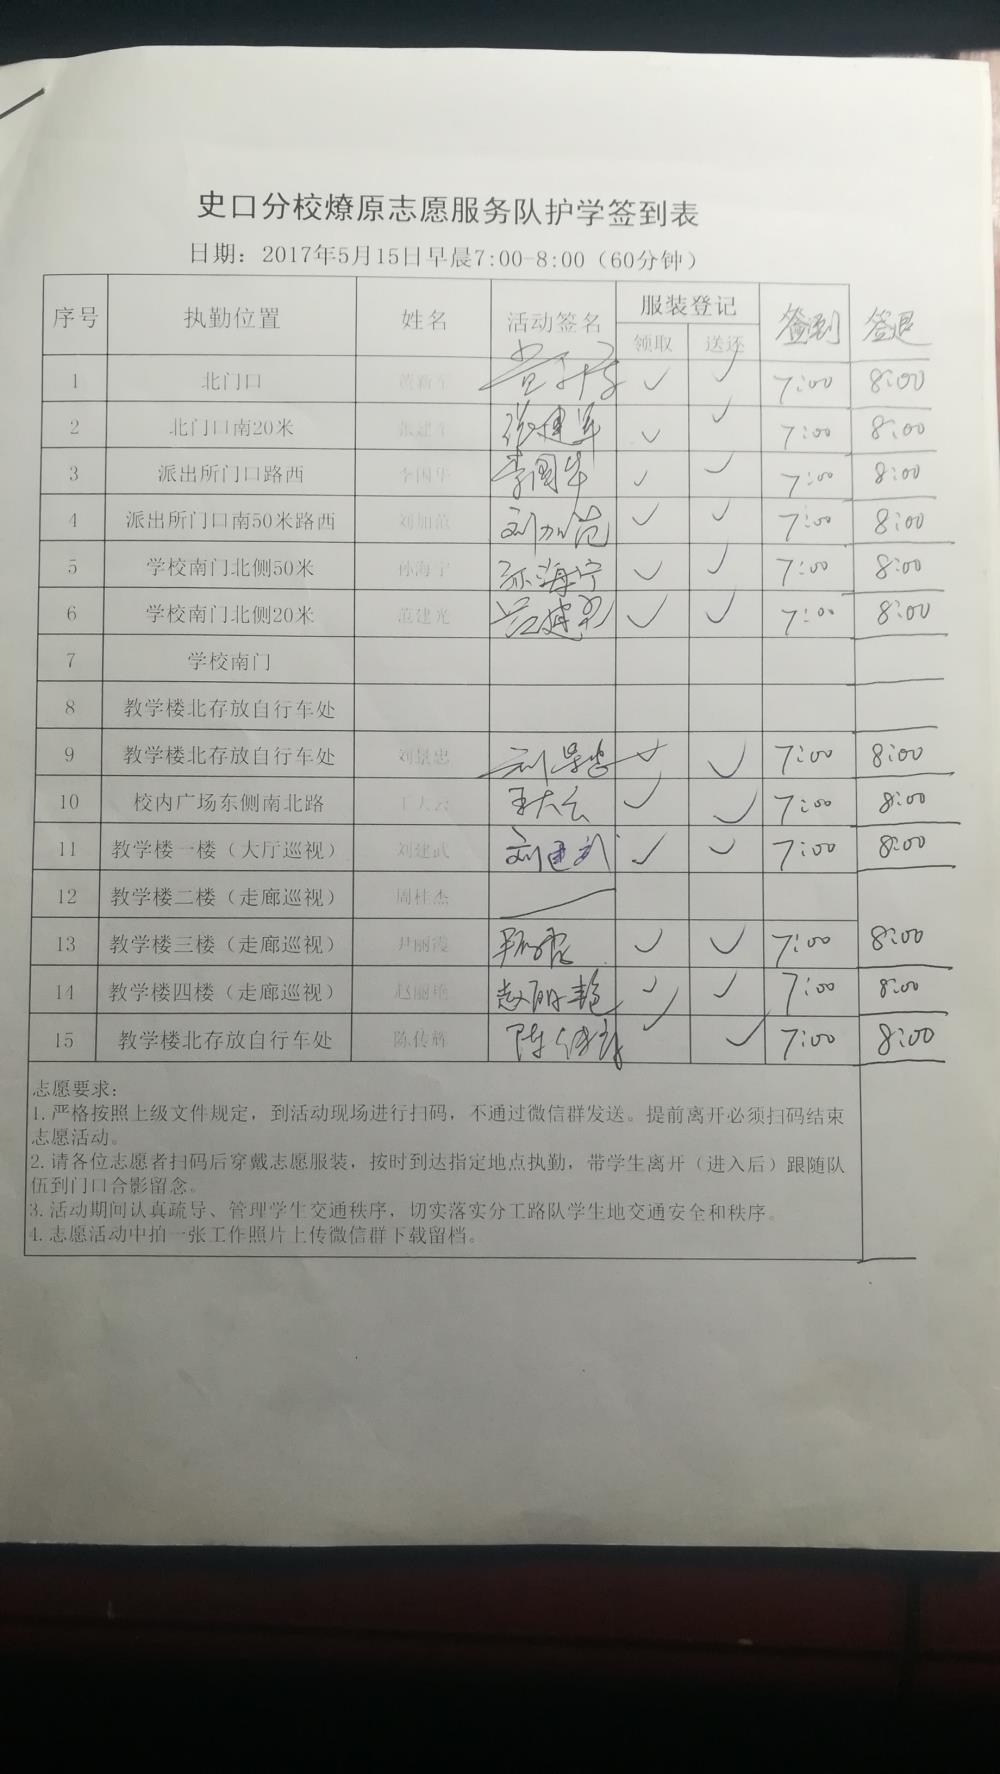 史口分校燎原志愿服务队护学签到表
日期：2017年5月15日早晨7:00-8:00（60分钟）
序号 执勤位置 姓名 活动签名 服装登记 签到 签退
领取 送还
1 北门口 黄新军 ✓ ✓ 7:00 8:00
2 北门口南20米 张建军 张建军 ✓ ✓ 7:00 8:00
3 派出所门口路西 李国华 李国华 ✓ ✓ 7:00 8:00
4 派出所门口南50米路西 刘加范 刘加范 ✓ ✓ 7:00 8:00
5 学校南门北侧50米 孙海宁 孙海宁 ✓ ✓ 7:00 8:00
6 学校南门北侧20米 范建光 范建光 ✓ ✓ 7:00 8:00
7 学校南门
8 教学楼北存放自行车处
9 教学楼北存放自行车处 刘景忠 刘景忠 ✓ ✓ 7:00 8:00
10 校内广场东侧南北路 王大云 王大云 ✓ ✓ 7:00 8:00
11 教学楼一楼（大厅巡视） 刘建武 刘建武 ✓ ✓ 7:00 8:00
12 教学楼二楼（走廊巡视） 周桂杰
13 教学楼三楼（走廊巡视） 尹丽霞 尹丽霞 ✓ ✓ 7:00 8:00
14 教学楼四楼（走廊巡视） 赵丽艳 赵丽艳 ✓ ✓ 7:00 8:00
15 教学楼北存放自行车处 陈传辉 陈传辉 ✓ ✓ 7:00 8:00
志愿要求：
1.严格按照上级文件规定，到活动现场进行扫码，不通过微信群发送。提前离开必须扫码结束
志愿活动。
2.请各位志愿者扫码后穿戴志愿服装，按时到达指定地点执勤，带学生离开（进入后）跟随队
伍到门口合影留念。
3.活动期间认真疏导、管理学生交通秩序，切实落实分工路队学生地交通安全和秩序。
4.志愿活动中拍一张工作照片上传微信群下载留档。